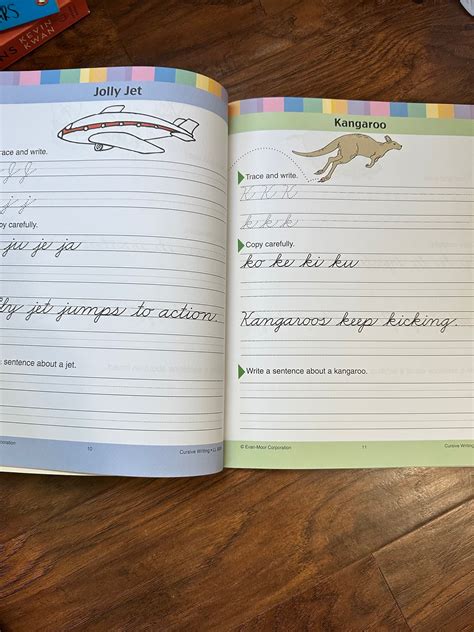 KEVIN
KWAN
Jolly Jet
race and write.
J J
j j
py carefully.
ju je ja
lly jet jumps to action.
sentence about a jet.
10
Cursive Writing
Kangaroo
Trace and write.
K K K
k k k
Copy carefully.
ko ke ki ku
Kangaroos keep kicking.
Write a sentence about a kangaroo.
© Evan-Moor Corporation
11
Cursive Writing